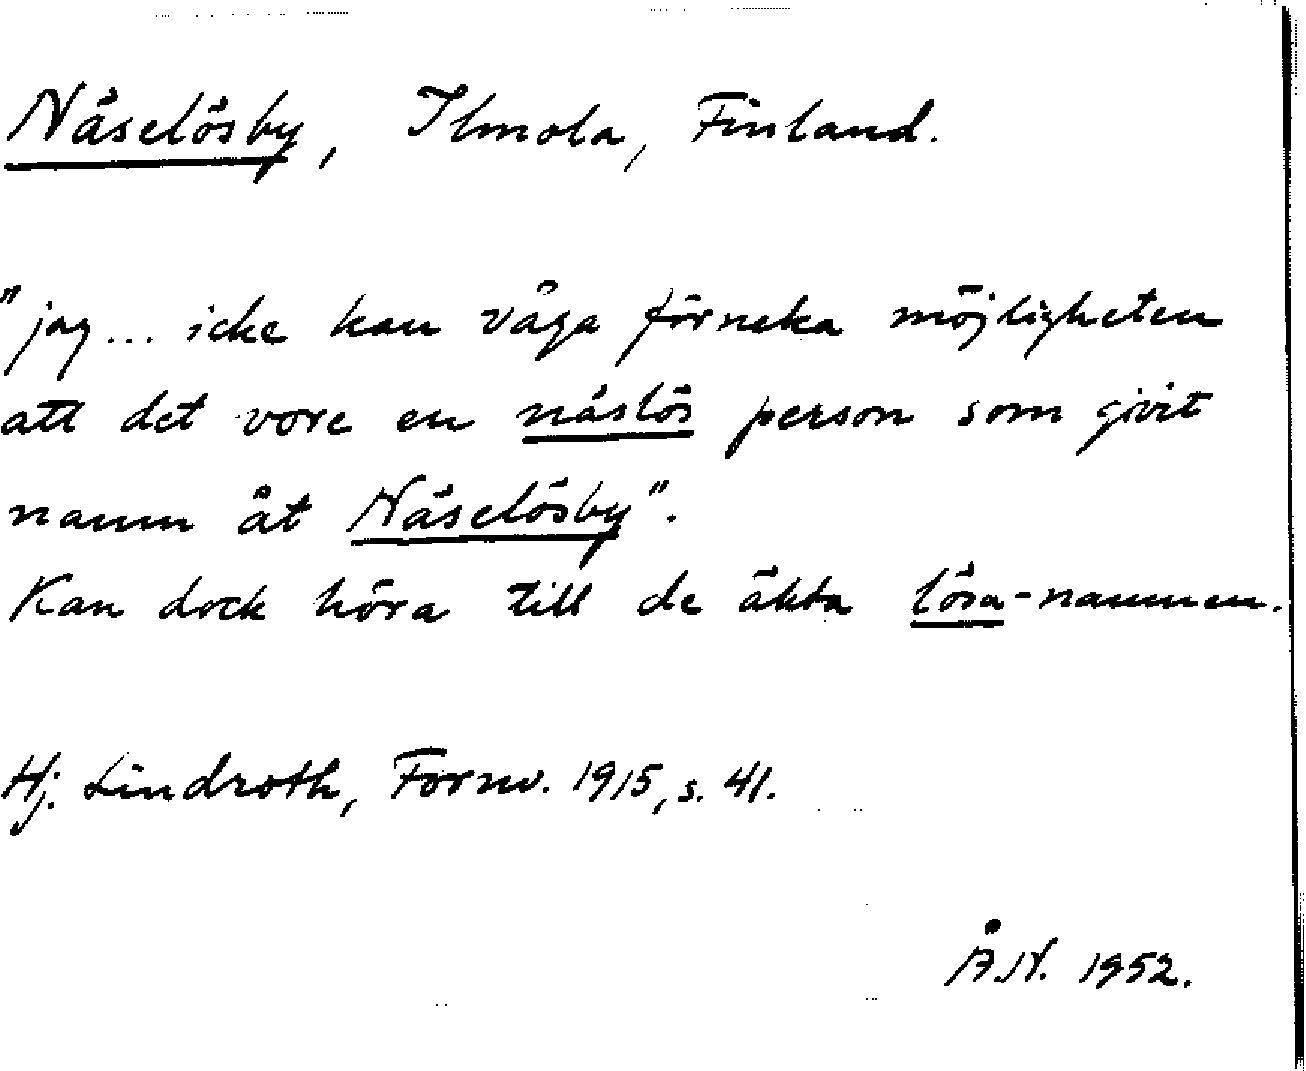 Näselösby, Ilmola, Finland.
"jag... icke kan våga förneka möjligheten
att det vore en näslös person som givit
namn åt Näselösby".
Kan dock höra till de äkta lösa-namnen.
Hj. Lindroth, Fornv. 1915, s. 41.
Å.N. 1952.